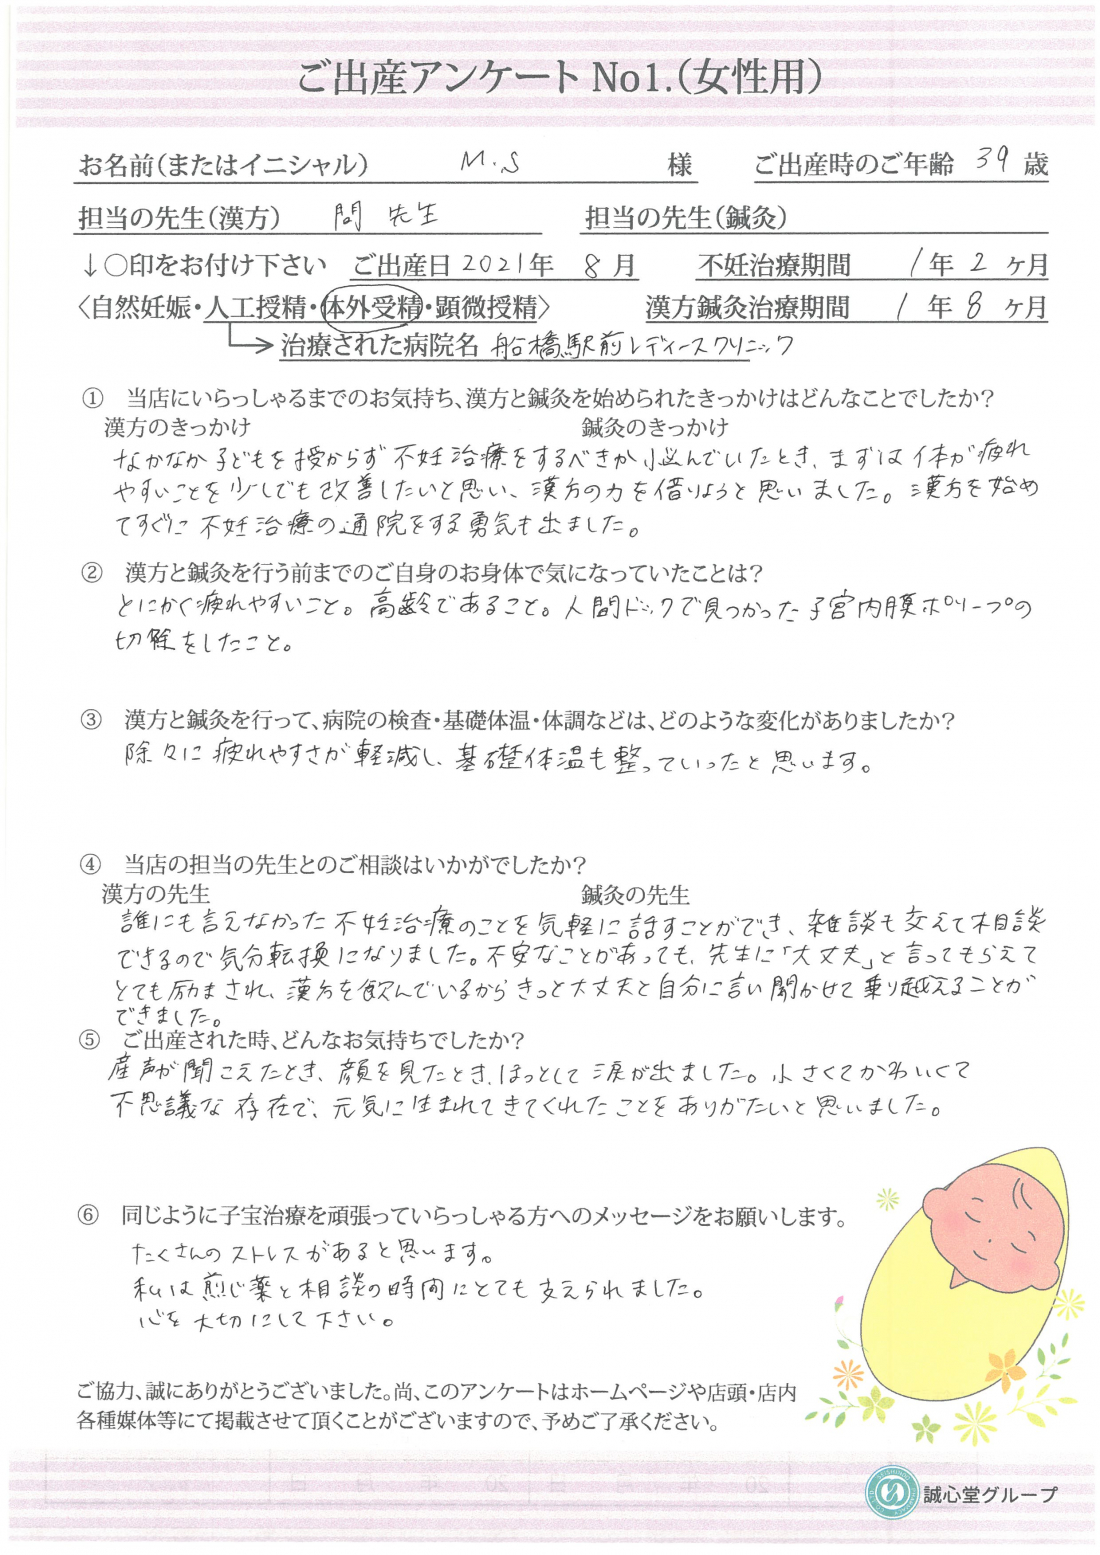 ご出産アンケート No1.(女性用)
お名前(またはイニシャル) M.S 様 ご出産時のご年齢 39 歳
担当の先生(漢方) 問 先生 担当の先生(鍼灸)
↓○印をお付け下さい ご出産日 2021年 8月 不妊治療期間 1年 2ヶ月
〈自然妊娠・人工授精・体外受精・顕微授精〉 漢方鍼灸治療期間 1年 8ヶ月
治療された病院名 船橋駅前レディースクリニック
① 当店にいらっしゃるまでのお気持ち、漢方と鍼灸を始められたきっかけはどんなことでしたか?
漢方のきっかけ 鍼灸のきっかけ
なかなか子どもを授からず不妊治療をするべきか悩んでいたとき、まずは体が疲れ
やすいことを少しでも改善したいと思い、漢方の力を借りようと思いました。漢方を始め
てすぐに不妊治療の通院をする勇気も出ました。
② 漢方と鍼灸を行う前までのご自身のお身体で気になっていたことは?
とにかく疲れやすいこと。高齢であること。人間ドックで見つかった子宮内膜ポリープの
切除をしたこと。
③ 漢方と鍼灸を行って、病院の検査・基礎体温・体調などは、どのような変化がありましたか?
除々に疲れやすさが軽減し、基礎体温も整っていったと思います。
④ 当店の担当の先生とのご相談はいかがでしたか?
漢方の先生 鍼灸の先生
誰にも言えなかった不妊治療のことを気軽に話すことができ、雑談も交えて相談
できるので気分転換になりました。不安なことがあっても、先生に「大丈夫」と言ってもらえて
とても励まされ、漢方を飲んでいるからきっと大丈夫と自分に言い聞かせて乗り越えることが
できました。
⑤ ご出産された時、どんなお気持ちでしたか?
産声が聞こえたとき、顔を見たとき、ほっとして涙が出ました。小さくてかわいくて
不思議な存在で、元気に生まれてきてくれたことをありがたいと思いました。
⑥ 同じように子宝治療を頑張っていらっしゃる方へのメッセージをお願いします。
たくさんのストレスがあると思います。
私は煎じ薬と相談の時間にとても支えられました。
心を大切にして下さい。
ご協力、誠にありがとうございました。尚、このアンケートはホームページや店頭・店内
各種媒体等にて掲載させて頂くことがございますので、予めご了承ください。
誠心堂グループ